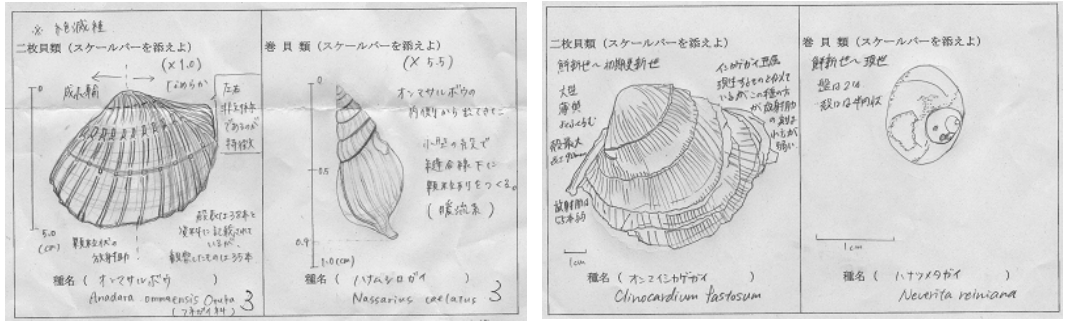 ※ 絶滅種
二枚貝類（スケールバーを添えよ）
(×1.0)
成長輪
なめらか
左右
非対称
であるのが
特徴
0
5.0
(cm)
顆粒状の
放射肋
殻表は38本と
資料に記載されて
いるが、
観察したものは35本
種名（オンマサルボウ）
Anadara ommaensis Otuka
(フネガイ科)
3
巻貝類（スケールバーを添えよ）
(×5.5)
0
0.5
0.9
1.0(cm)
オンマサルボウの
内側から出てきた
小型の
縫合線下に
顆粒列をつくる。
(暖流系)
種名（ハナムシロガイ）
Nassarius caelatus
3
二枚貝類（スケールバーを添えよ）
鮮新世〜初期更新世
大型
薄質
よくふくらむ
殻最大
イシカゲガイ
現生するものと似て
いるがこの種の方
が放射肋
の
が
強い
放射肋は
1cm
種名（オンマイシカゲガイ）
Clinocardium fastosum
巻貝類（スケールバーを添えよ）
鮮新世〜現世
殻は半球状
1cm
種名（ハナツメタガイ）
Neverita reiniana